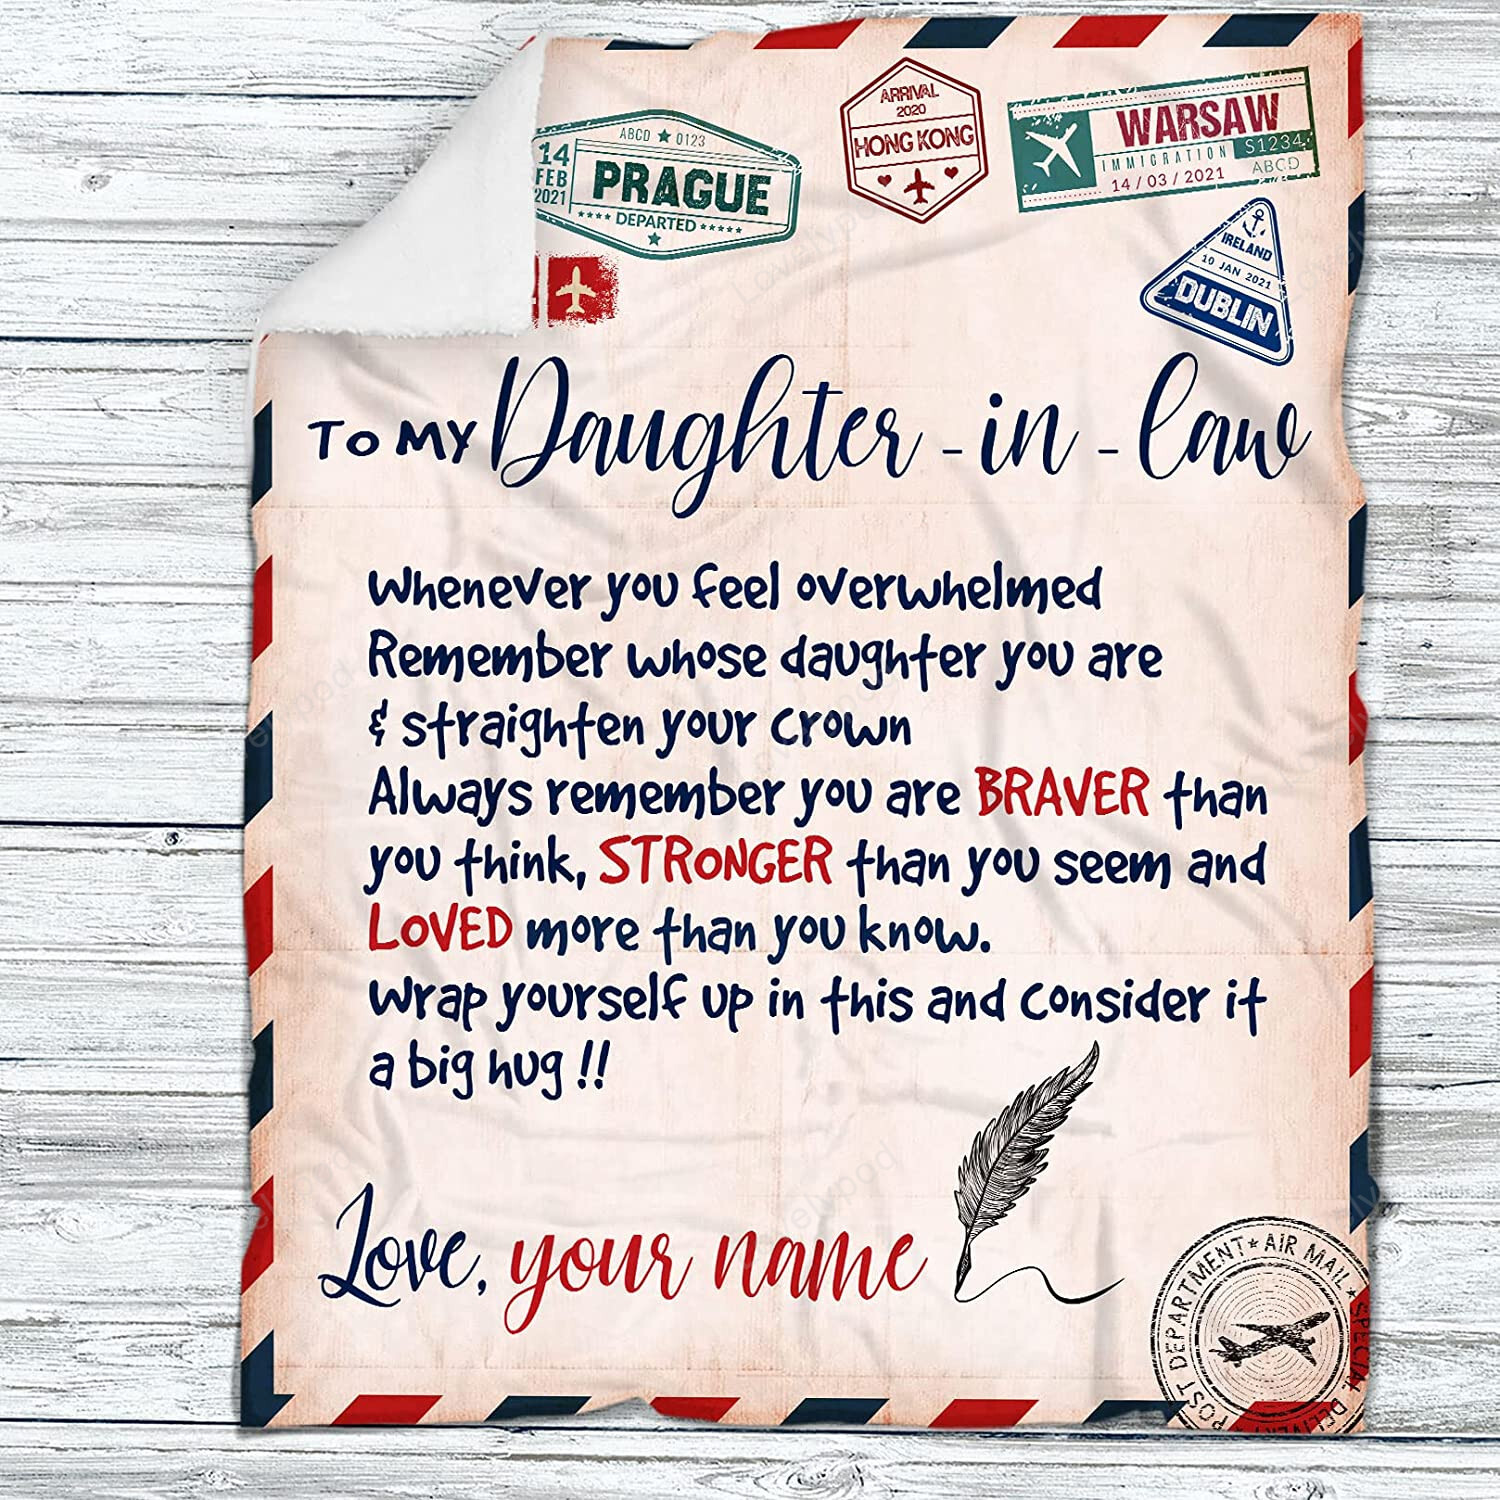 ABCD ★ 0123
14
FEB
2021
PRAGUE
DEPARTED
ARRIVAL
2020
HONG KONG
WARSAW
IMMIGRATION
S1234
14 / 03 / 2021
ABCD
IRELAND
10 JAN 2021
DUBLIN
TO MY Daughter-in-law
Whenever you feel overwhelmed
Remember whose daughter you are
& straighten your crown
Always remember you are BRAVER than
you think, STRONGER than you seem and
LOVED more than you know.
Wrap yourself up in this and consider it
a big hug !!
Love, your name
POST DEPARTMENT ★ AIR MAIL ★ SPECIAL DELIVERY
Lovelypod